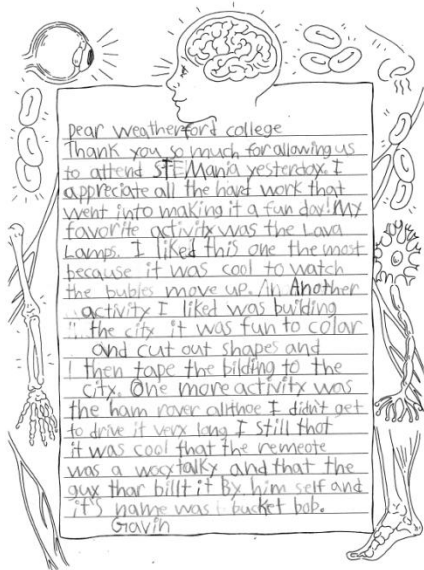 Dear Weatherford college
Thank you so much for allowing us
to attend STEMania yesterday. I
appreciate all the hard work that
went into making it a fun day! My
favorite activity was the Lava
Lamps. I liked this one the most
because it was cool to watch
the bubles move up. Another
activity I liked was building
the city it was fun to colar
and cut out shapes and
then tape the bilding to the
city. One more activity was
the ham rover allthoe I didn't get
to drive it very long I still thot
it was cool that the remeote
was a wocytalky and that the
guy thar billt it By him self and
it's name was bucket bob.
Gavin